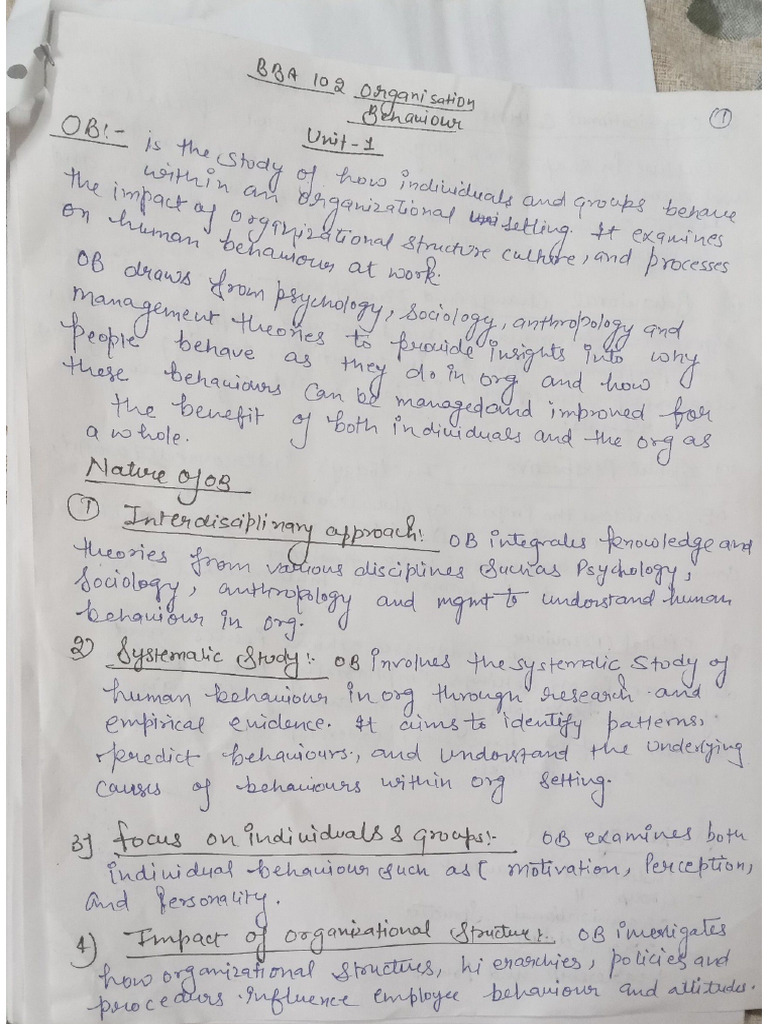 BBA 102 Organisation
Behaviour
①
Unit-1
OB:- is the study of how individuals and groups behave
within an organizational setting. It examines
the impact of organizational structure culture, and processes
on human behaviour at work.
OB draws from psychology, sociology, anthropology and
management theories to provide insights into why
people behave as they do in org and how
these behaviours can be managed and improved for
the benefit of both individuals and the org as
a whole.
Nature of OB
① Interdisciplinary approach:. OB integrates knowledge and
theories from various disciplines such as Psychology,
Sociology, anthropology and mgmt to understand human
behaviour in org.
2) Systematic Study:. OB involves the systematic study of
human behaviour in org through research and
empirical evidence. It aims to identify patterns,
predict behaviours, and understand the underlying
causes of behaviours within org setting.
3) focus on individuals & groups:- OB examines both
individual behaviour such as ( motivation, Perception,
and Personality.
4) Impact of organizational structure:. OB investigates
how organizational structures, hierarchies, policies and
procedures influence employee behaviour and attitudes.